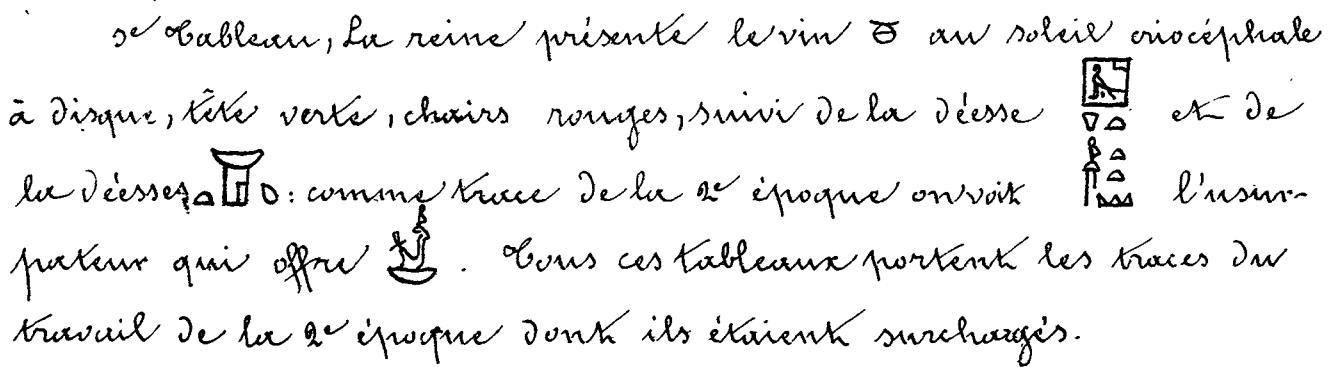 5e Tableau, La reine présente le vin au soleil criocéphale
à disque, tête verte, chairs rouges, suivi de la déesse et de
la déesse : comme trace de la 2e époque on voit l'usur-
pateur qui offre . Tous ces tableaux portent les traces du
travail de la 2e époque dont ils étaient surchargés.